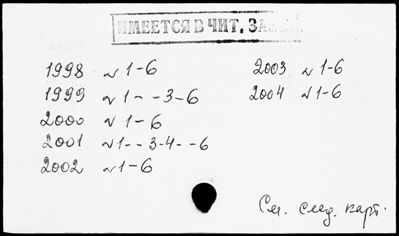 ИМЕЕТСЯ В ЧИТ. ЗА
1998 № 1-6
1999 № 1 - - 3 - 6
2000 № 1 - 6
2001 № 1 - - 3-4 - - 6
2002 № 1-6
2003 № 1-6
2004 № 1-6
См. след. карт.